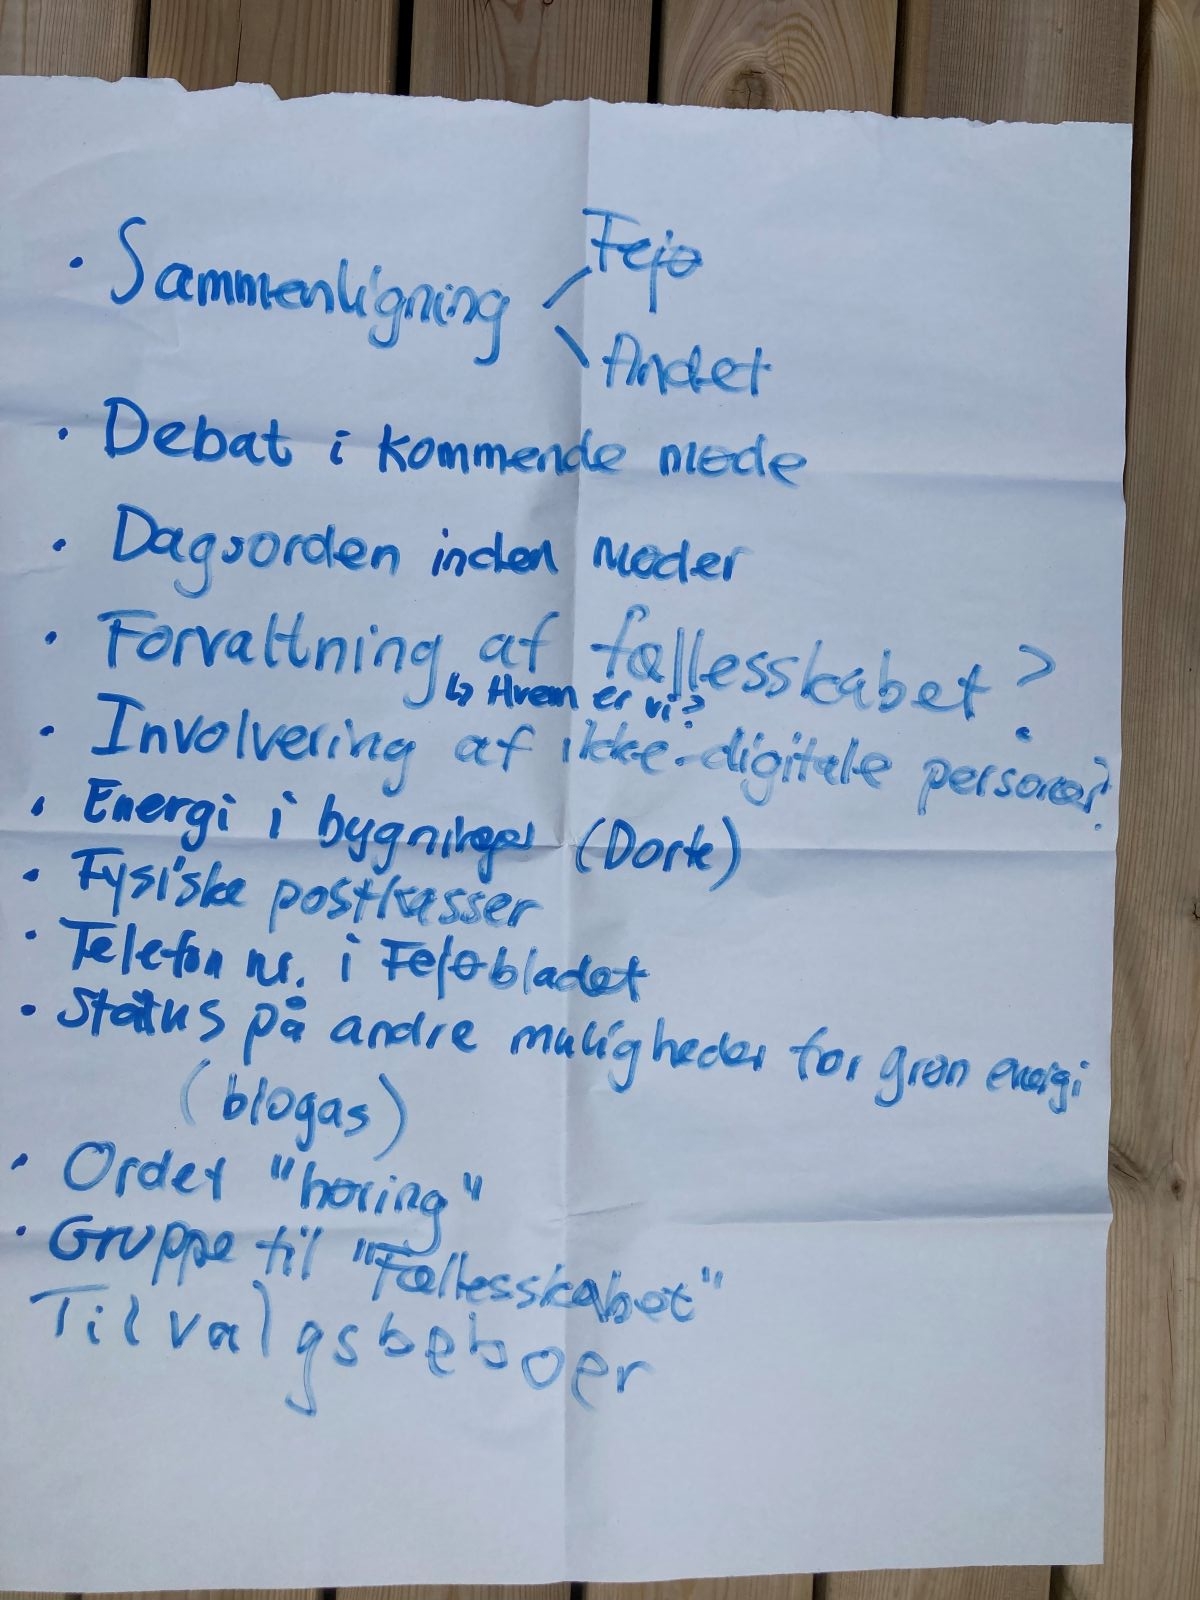 · Sammenligning / Fejø
\ Andet
· Debat i kommende møde
· Dagsorden inden møder
· Forvaltning af fællesskabet?
↳ Hvem er vi?
· Involvering af ikke-digitale personer?
· Energi i bygninger (Dorte)
· Fysiske postkasser
· Telefon nr. i Fejøbladet
· Status på andre muligheder for grøn energi
(biogas)
· Ordet "høring"
· Gruppe til "Fællesskabet"
Tilvalgsbeboer